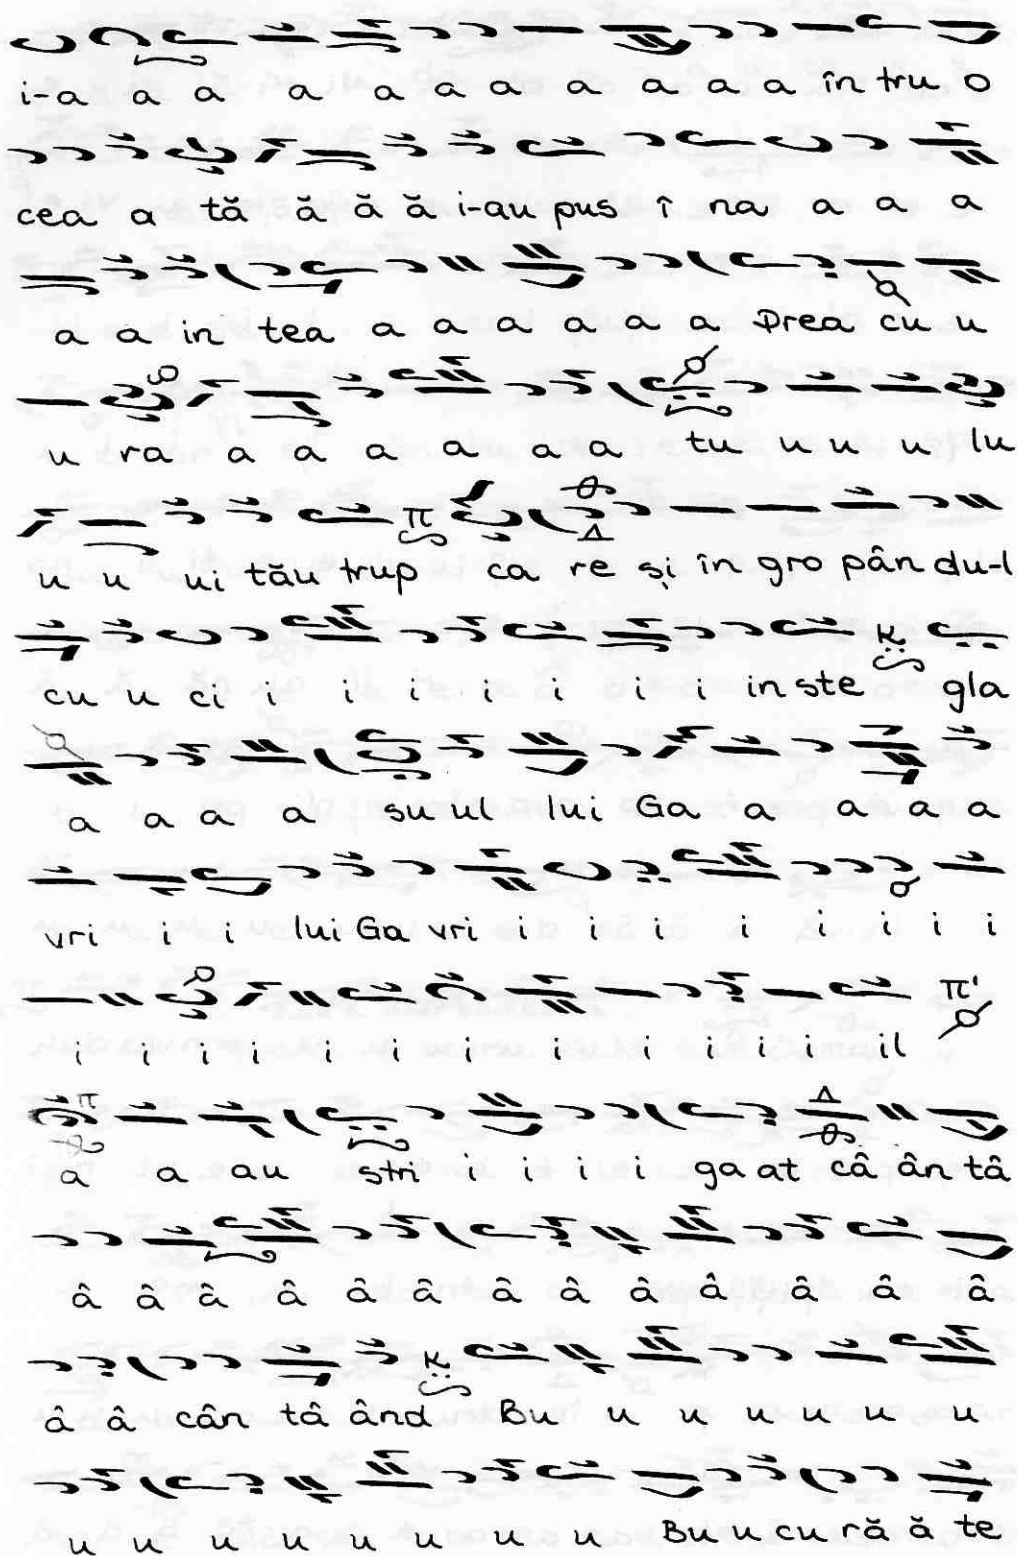 i-a a a a a a a a a a a a în tru o
cea a tă ă ă ă i-au pus î na a a a
a a in tea a a a a a a Prea cu u
u ra a a a a a a tu u u u lu
u u ui tău trup ca re și în gro pân du-l
π Δ
cu u ci i i i i i i i in ste gla
a a a a su ul lui Ga a a a a
vri i i lui Ga vri i i i i i i i
i i i i i i i i i i i i il
π'
π Δ
a a au stri i i i i ga at câ ân tâ
â â â â â â â â â â â â â
â â cân tâ ând Bu u u u u u u
u u u u u u u u Bu u cu ră ă te